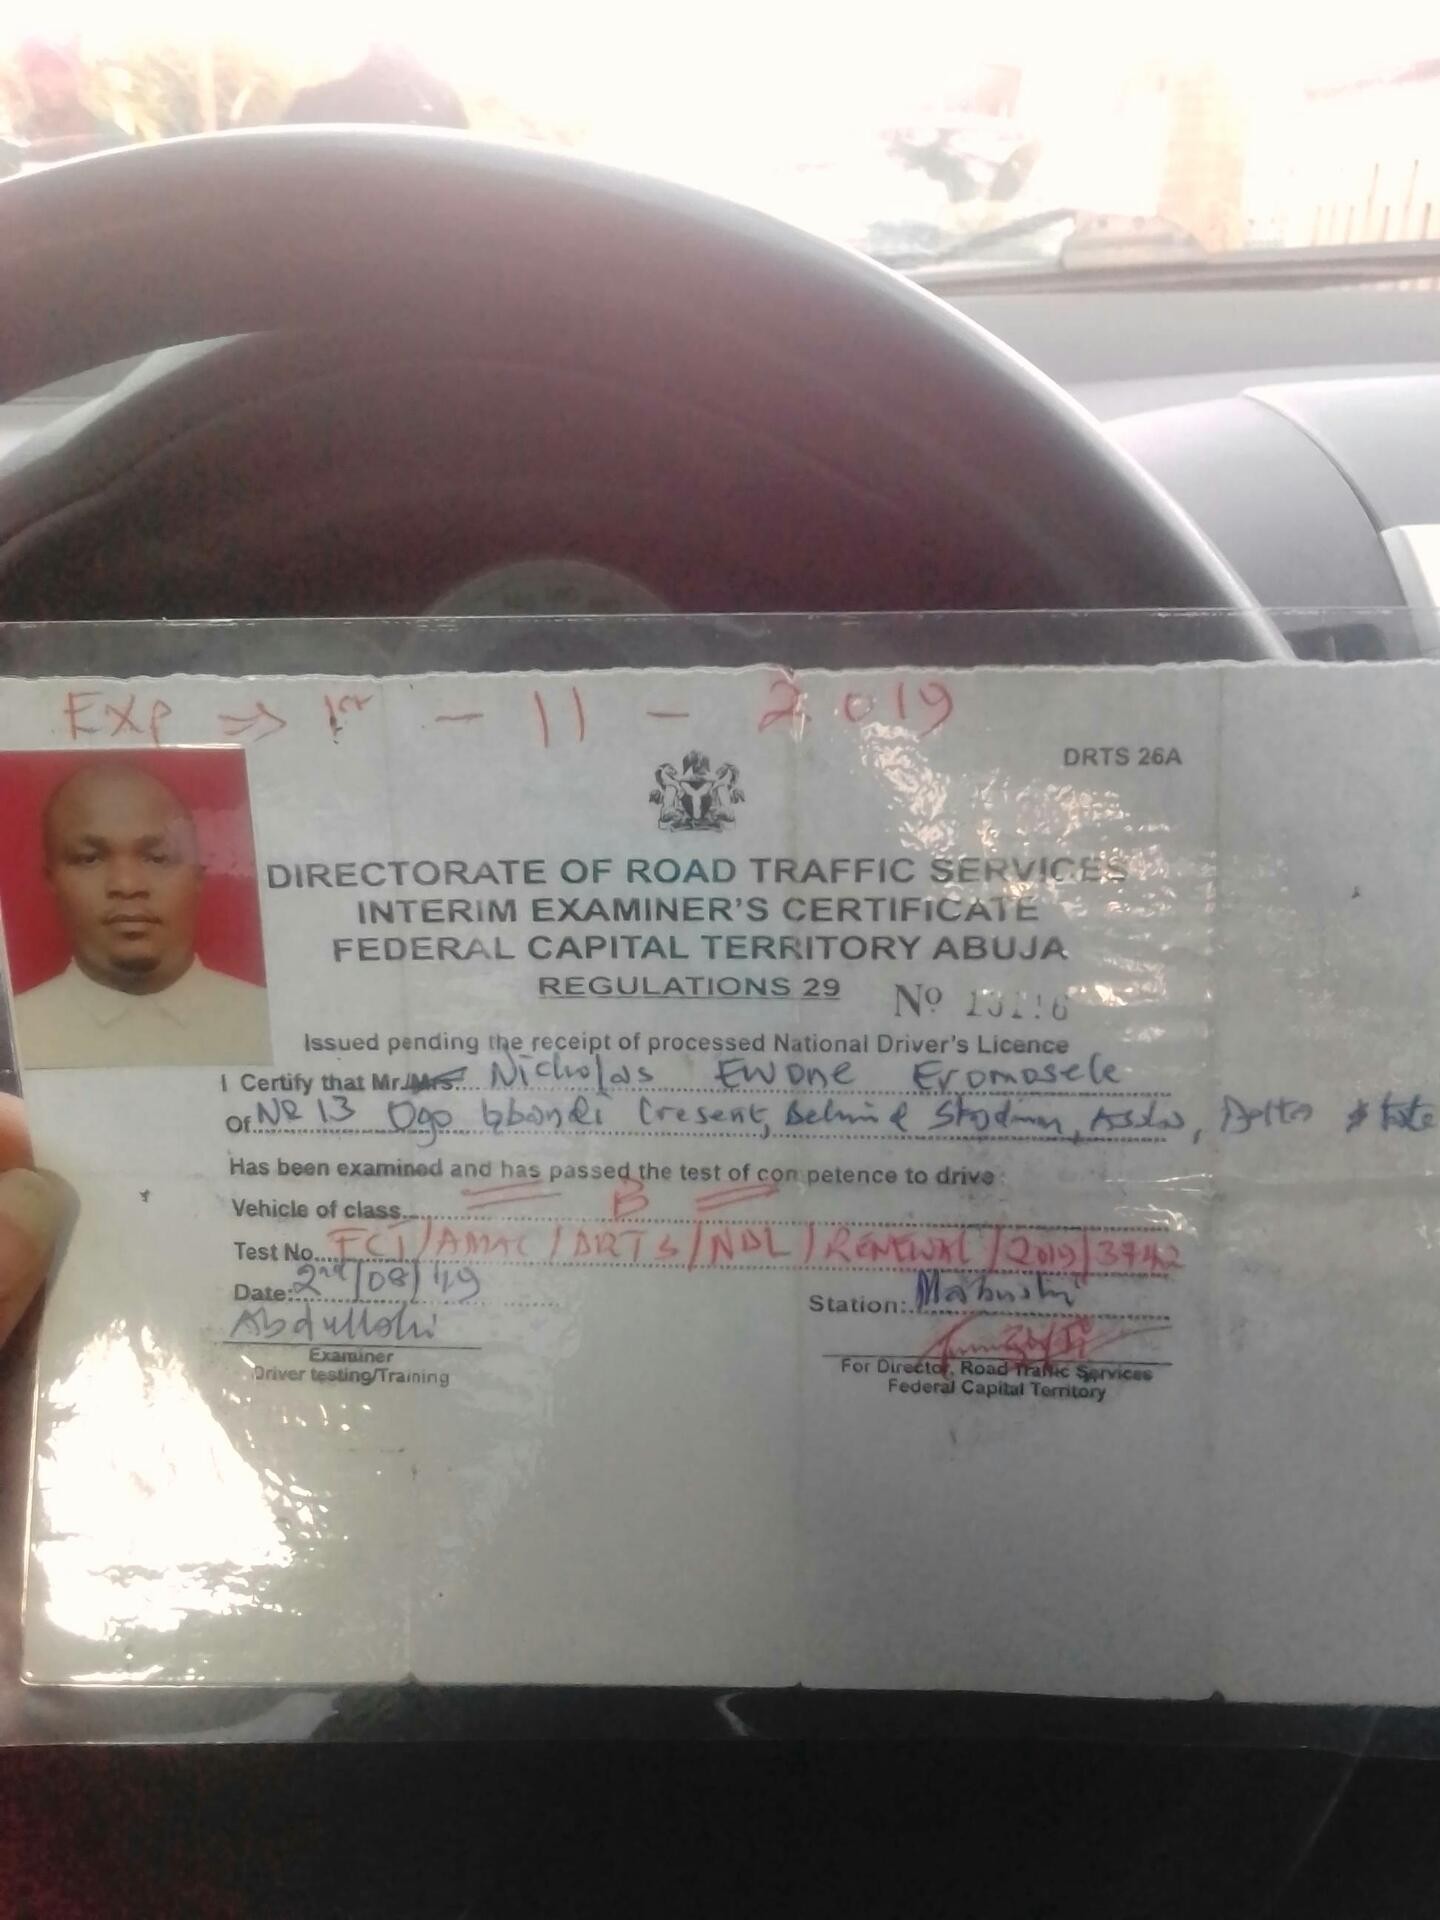 Exp ⇒ 1st - 11 - 2019
DRTS 26A
DIRECTORATE OF ROAD TRAFFIC SERVICES
INTERIM EXAMINER'S CERTIFICATE
FEDERAL CAPITAL TERRITORY ABUJA
REGULATIONS 29
Nº
Issued pending the receipt of processed National Driver's Licence
I Certify that Mr./Mrs. Nicholas Ewone Eromosele
Of Nº 13 Ogo Cresent, Behind Delta State
Has been examined and has passed the test of competence to drive:
Vehicle of class B
Test No. FCT/AMAC/DRTS/NDL/RENEWAL/2019/3742
Date: 2nd/08/19
Station: Mabushi
Abdullahi
Examiner
Driver testing/Training
For Director, Road Traffic Services
Federal Capital Territory